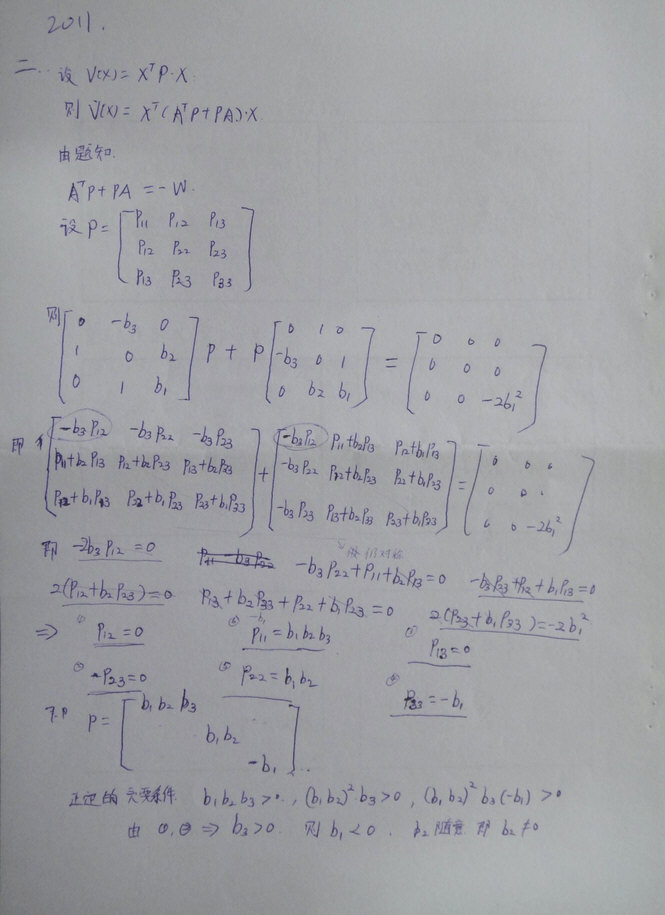 2011.
二. 设 V(x) = X^T P·X.
则 V̇(x) = X^T (A^T P + PA)·X.
由题知.
A^T P + PA = -W.
设 P = [ P11 P12 P13
P12 P22 P23
P13 P23 P33 ]
则 [ 0 -b3 0 ; 1 0 b2 ; 0 1 b1 ] P + P [ 0 1 0 ; -b3 0 1 ; 0 b2 b1 ] = [ 0 0 0 ; 0 0 0 ; 0 0 -2b1^2 ]
即 [ -b3P12 -b3P22 -b3P23 ; P11+b2P13 P12+b2P23 P13+b2P33 ; P12+b1P13 P22+b1P23 P23+b1P33 ] + [ -b3P12 P11+b2P13 P12+b1P13 ; -b3P22 P12+b2P23 P22+b1P23 ; -b3P23 P13+b2P33 P23+b1P33 ] = [ 0 0 0 ; 0 0 ; 0 0 -2b1^2 ]
仍对称
即 -2b3P12 = 0 -b3P22+P11+b2P13=0 -b3P23+P12+b1P13=0
2(P12+b2P23)=0 P13+b2P33+P22+b1P23=0 2(P23+b1P33)=-2b1^2
⇒ P12 = 0 P11 = b1b2b3 P13=0
P23=0 P22=b1b2 P33=-b1
即 P = [ b1b2b3
b1b2
-b1 ]
正定的充要条件. b1b2b3>0, (b1b2)^2·b3>0, (b1b2)^2 b3(-b1)>0
由 ①,② ⇒ b3>0. 则 b1<0. b2 随意 即 b2≠0